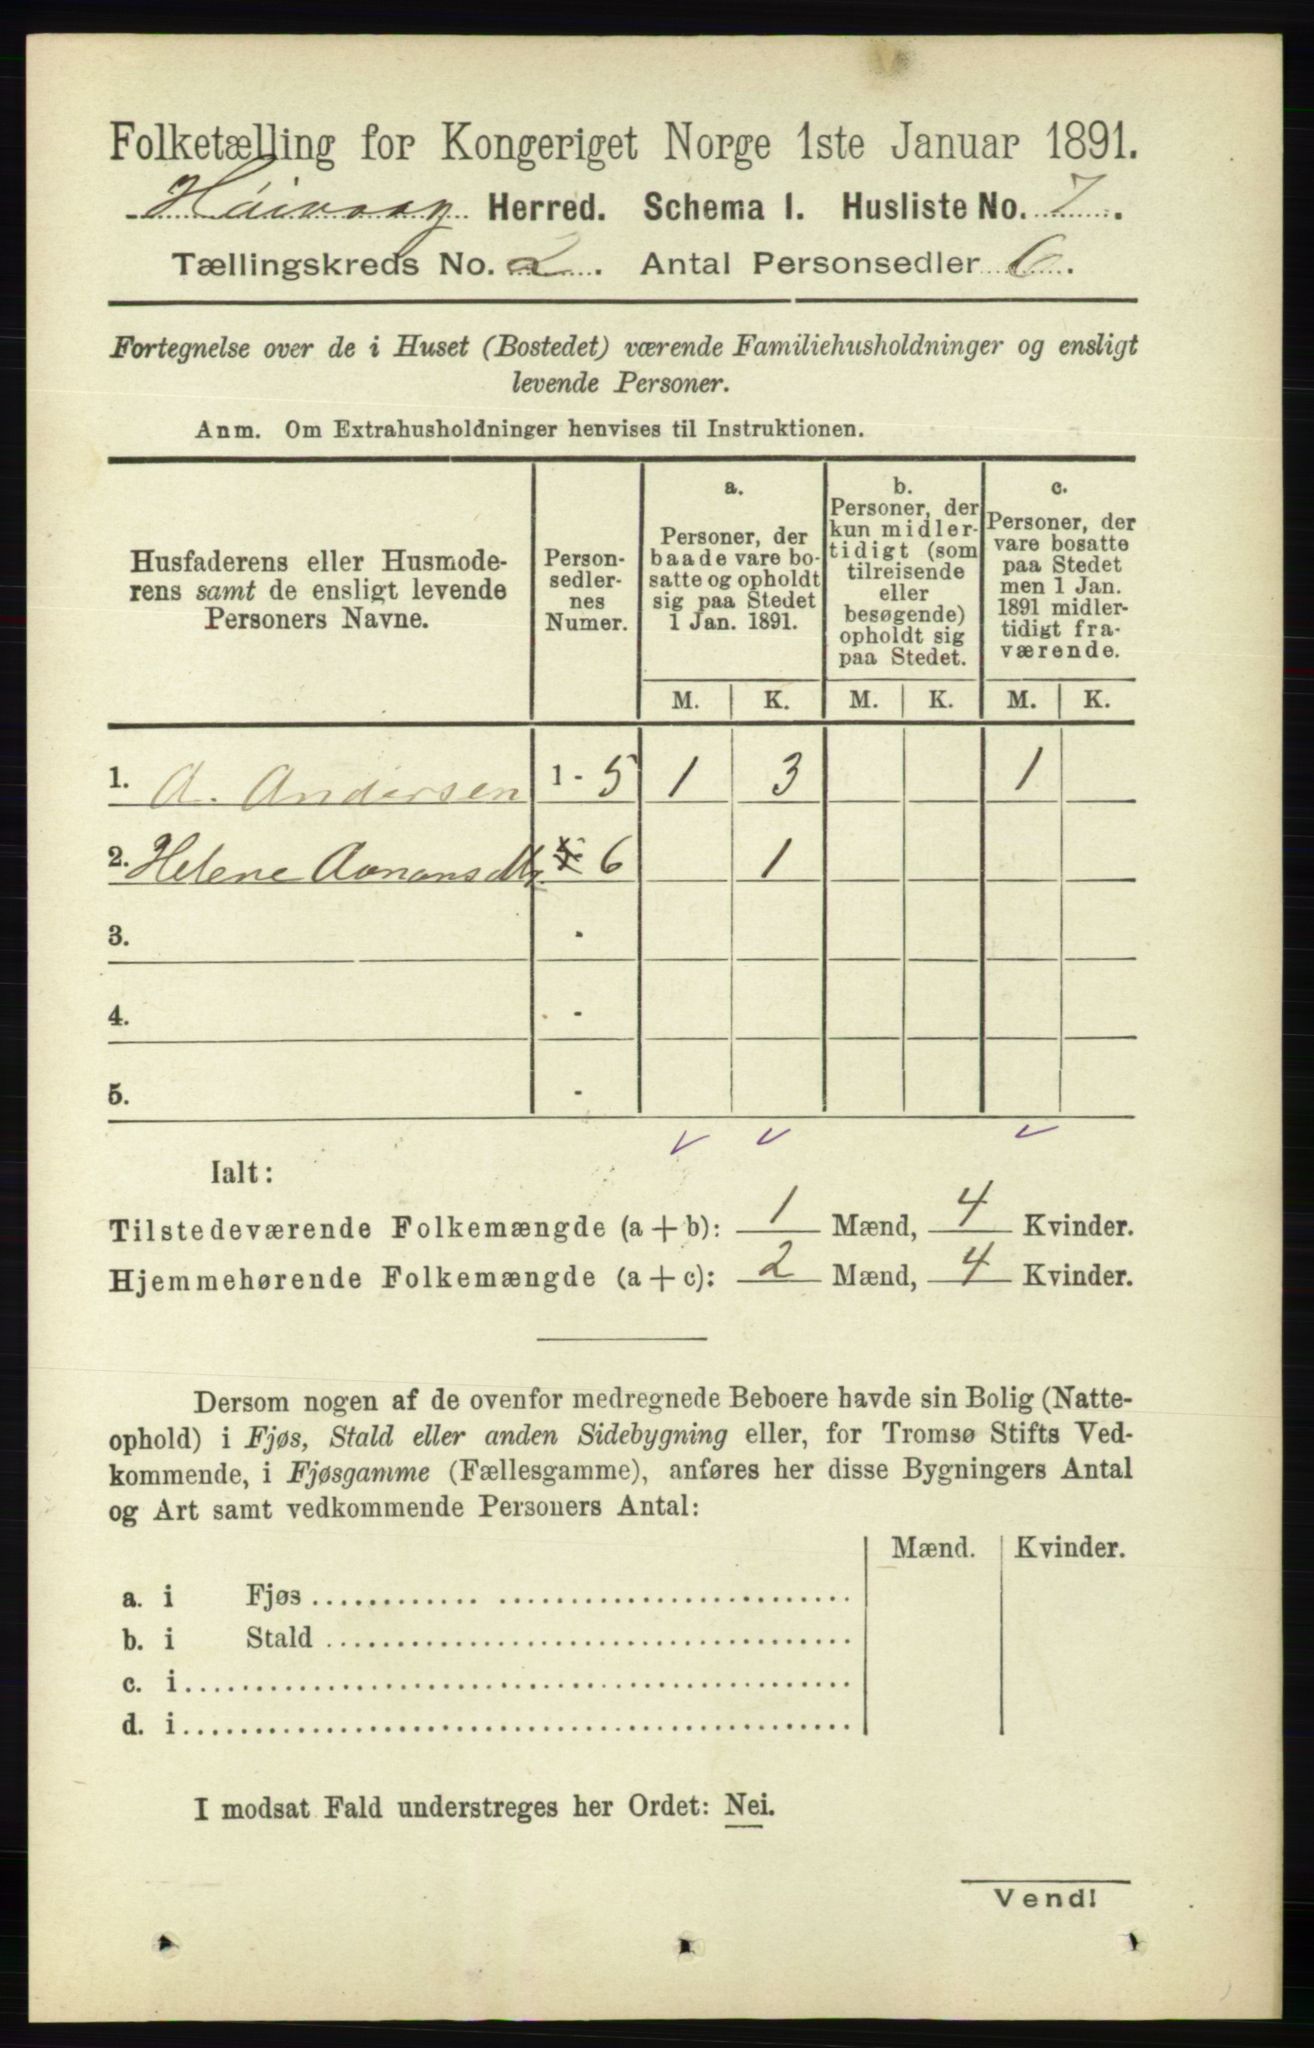 Folketælling for Kongeriget Norge 1ste Januar 1891.
Høivaag Herred. Schema I. Husliste No. 7.
Tællingskreds No. 2. Antal Personsedler 6.
Fortegnelse over de i Huset (Bostedet) værende Familiehusholdninger og ensligt
levende Personer.
Anm. Om Extrahusholdninger henvises til Instruktionen.
Husfaderens eller Husmode-
rens samt de ensligt levende
Personers Navne.
Person-
sedler-
nes
Numer.
a.
Personer, der
baade vare bo-
satte og opholdt
sig paa Stedet
1 Jan. 1891.
b.
Personer, der
kun midler-
tidigt (som
tilreisende
eller
besøgende)
opholdt sig
paa Stedet.
c.
Personer, der
vare bosatte
paa Stedet
men 1 Jan.
1891 midler-
tidigt fra-
værende.
M. K. M. K. M. K.
1. A. Andersen 1 - 5 1 3 1
2. Helene Aanonsdtr 6 1
3. -
4. -
5. -
Ialt:
Tilstedeværende Folkemængde (a + b): 1 Mænd, 4 Kvinder.
Hjemmehørende Folkemængde (a + c): 2 Mænd, 4 Kvinder.
Dersom nogen af de ovenfor medregnede Beboere havde sin Bolig (Natte-
ophold) i Fjøs, Stald eller anden Sidebygning eller, for Tromsø Stifts Ved-
kommende, i Fjøsgamme (Fællesgamme), anføres her disse Bygningers Antal
og Art samt vedkommende Personers Antal:
Mænd. Kvinder.
a. i Fjøs
b. i Stald
c. i
d. i
I modsat Fald understreges her Ordet: Nei.
Vend!